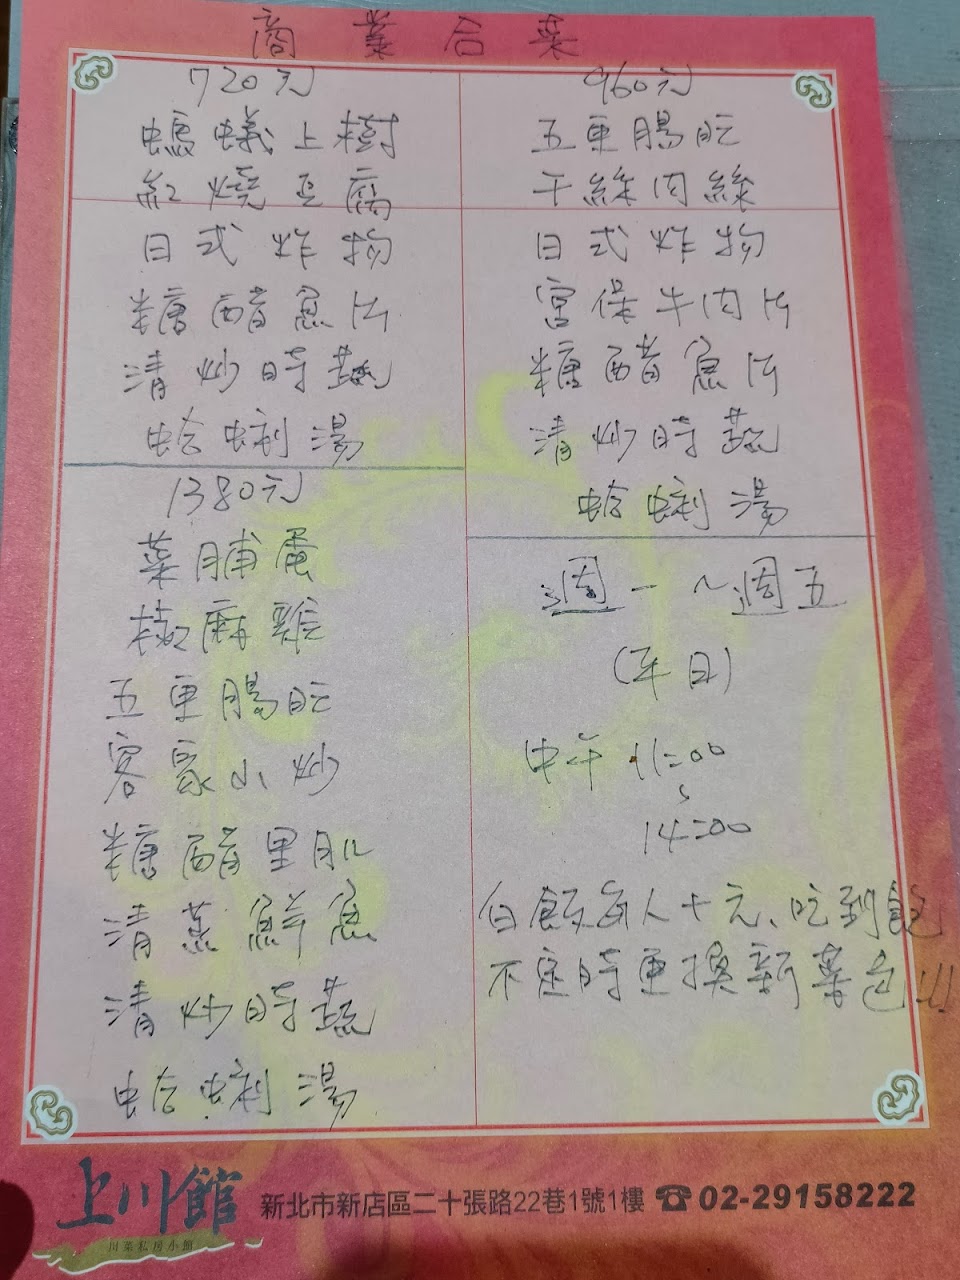 商業合菜
720元
螞蟻上樹
紅燒豆腐
日式炸物
糖醋魚片
清炒時蔬
蛤蜊湯
960元
五更腸旺
干絲肉絲
日式炸物
宮保牛肉片
糖醋魚片
清炒時蔬
蛤蜊湯
1380元
菜脯蛋
椒麻雞
五更腸旺
客家小炒
糖醋里肌
清蒸鮮魚
清炒時蔬
蛤蜊湯
週一~週五
(平日)
中午 11:00
~
14:00
白飯每人十元、吃到飽
不定時更換新菜色!!!
上川館
川菜私房小館
新北市新店區二十張路22巷1號1樓 ☎02-29158222